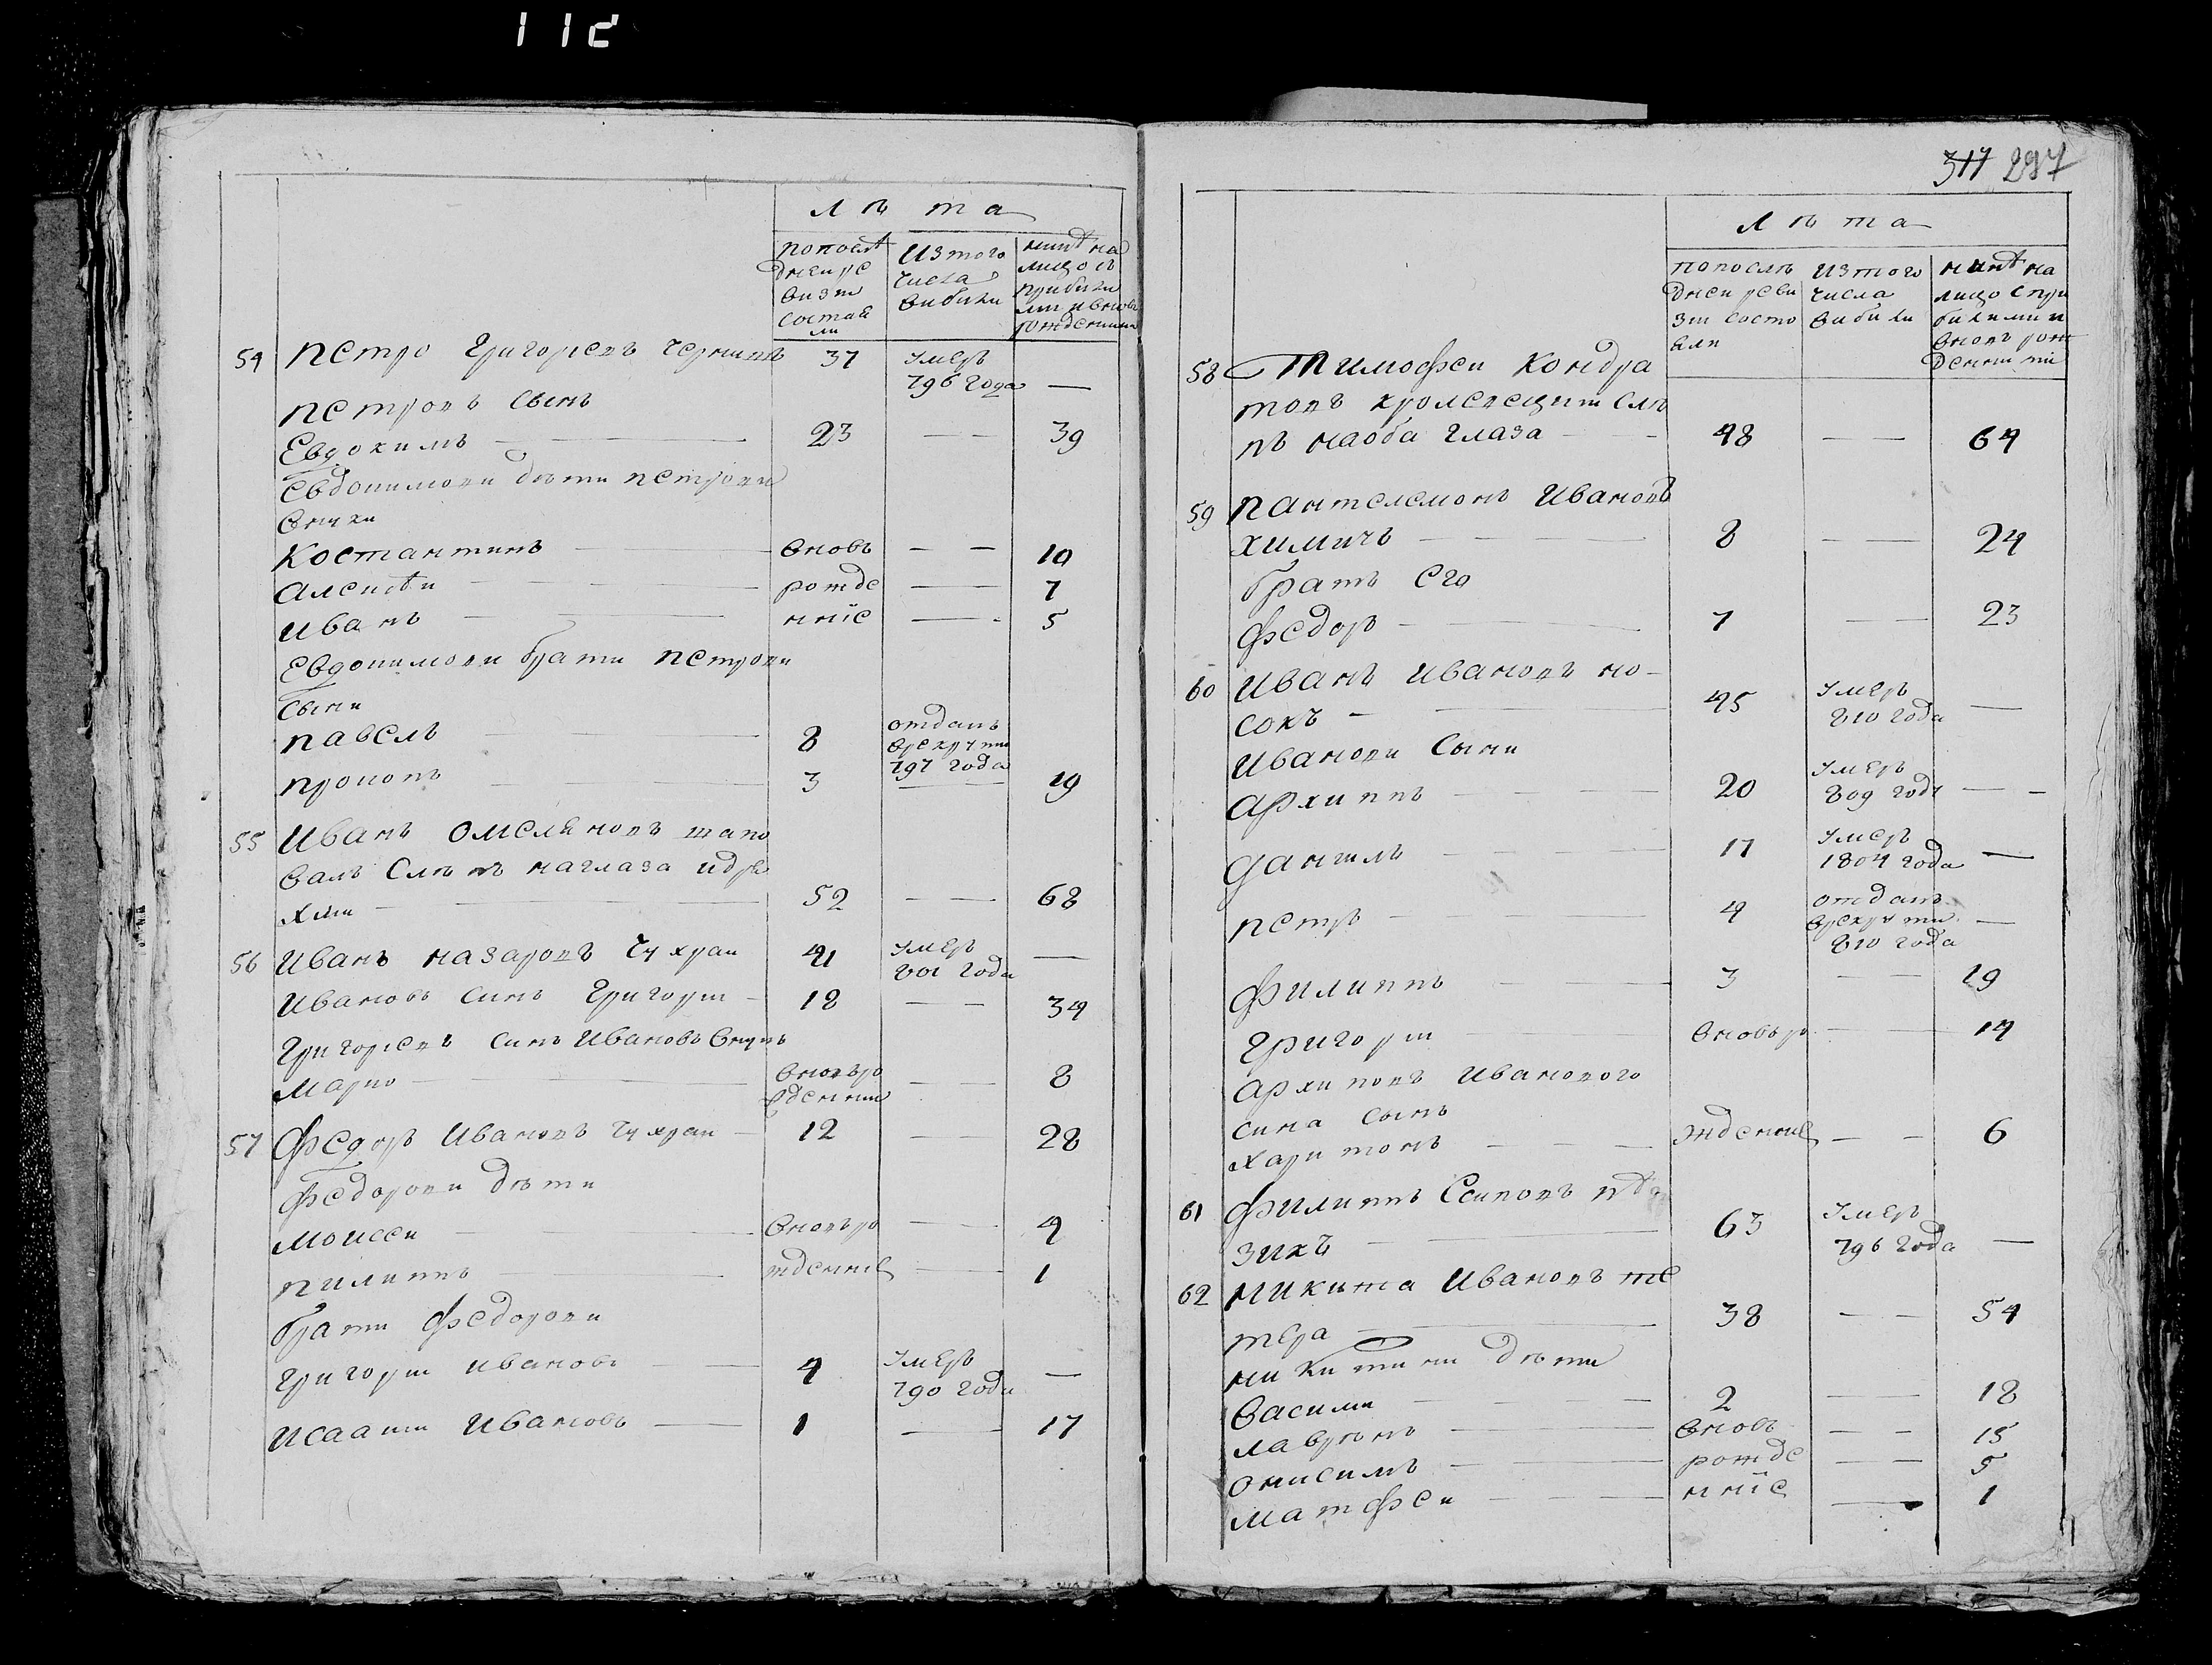 112
лѣта
попослѣ
дней ре
визи
состоя
ли
изтого
числа
выбыли
нинѣ на
лицо съ
прибили
ми и вновь
рожденими
54 Петро Григориевъ
37
умеръ
796 года
—
Петровъ сынъ
Евдокимъ
23
39
Евдокимови дѣти Петрови
внуки
Костантинъ
вновь
10
Алексѣй
рожде
7
Иванъ
нніе
5
Евдокимови брати Петрови
сыни
Павелъ
8
отданъ
врекрути
797 года
Прокопъ
3
19
55 Иванъ Омеляновъ шапо
валъ слѣпъ наглаза идря
хлій
52
68
56 Иванъ Назаровъ Чухрай
41
умеръ
801 года
—
Ивановъ синъ Григорій
18
34
Григориевъ синъ Ивановъ внукъ
Марко
вновьро
жденній
8
57 Федоръ Ивановъ Чухрай
12
28
Федорови дѣти
Моисей
вновьро
4
Пилиппъ
жденніе
1
Брати Федорови
Григорій Ивановъ
4
умеръ
790 года
—
Исаакій Ивановъ
1
17
317 297
лѣта
попослѣ
дней реви
зіи состо
яли
изтого
числа
вибили
нинѣ на
лицо спри
билими и
вновь рож
денними
58 Тимофей Кондра
товъ слѣ
пъ наоба глаза
48
64
59 Пантелемонъ Ивановъ
Химичъ
8
24
братъ его
Федоръ
7
23
60 Иванъ Ивановъ Но-
сокъ
45
умеръ
810 года
—
Иванови сыни
Архиппъ
20
умеръ
809 году
—
Данилъ
17
умеръ
1804 года
—
Петръ
4
отданъ
врекрути
810 года
—
Филиппъ
3
19
Григорій
вновьро
14
Архиповъ Иванового
сина сынъ
Харитонъ
жденніе
6
61 Филиппъ Есиповъ
зикъ
63
умеръ
796 года
—
62 Микита Ивановъ те
тера
38
54
Микитини дѣти
Василій
2
18
Лаврѣнъ
вновь
15
Онисимъ
рожде
5
Матфей
нніе
1